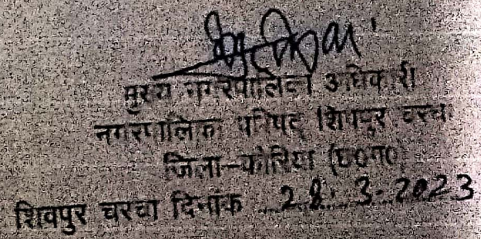 मुख्य नगरपालिका अधिकारी
नगरपालिका परिषद् शिवपुर चरचा
जिला-कोरिया (छ०ग०)
शिवपुर चरचा दिनांक 28.3.2023